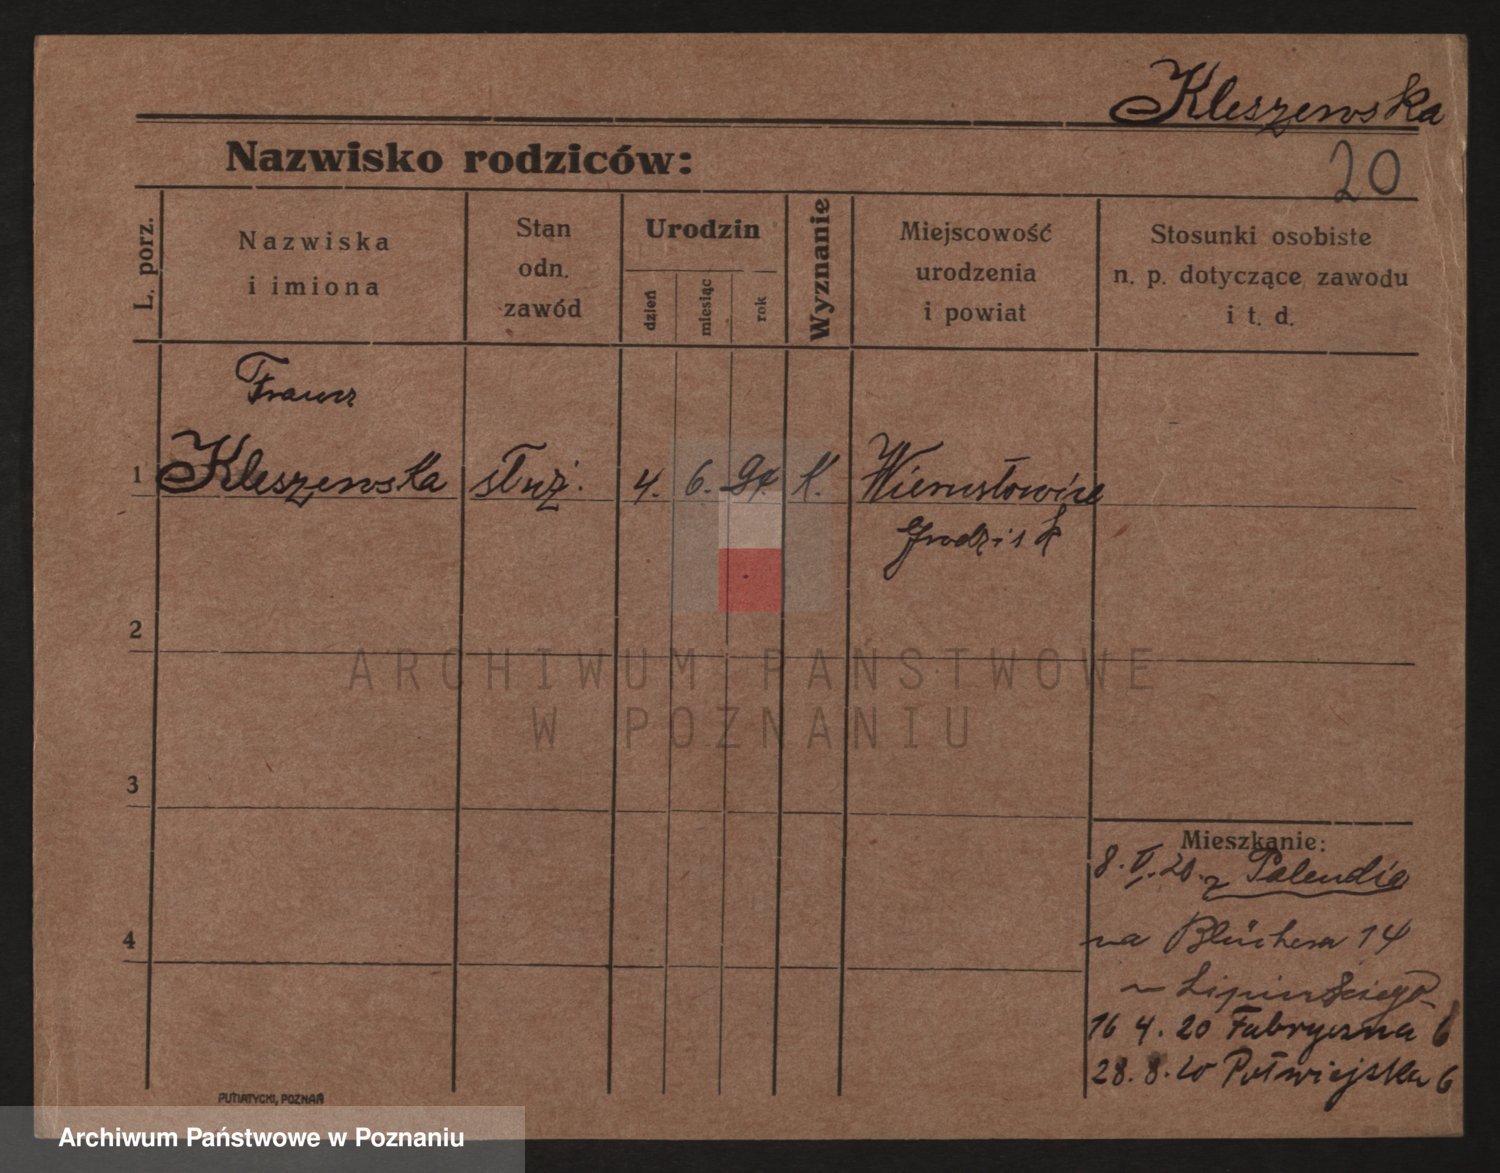 Kleszewska
Nazwisko rodziców:
20
L. porz.
Nazwiska
i imiona
Stan
odn.
zawód
Urodzin
dzień
miesiąc
rok
Wyznanie
Miejscowość
urodzenia
i powiat
Stosunki osobiste
n. p. dotyczące zawodu
i t. d.
Francz
1 Kleszewska służ. 4. 6. K.
Grodzisk
2
3
4
ARCHIWUM PAŃSTWOWE
W POZNANIU
Mieszkanie:
8. V. 20. z Palendia
na Blüchera 14
Lipińskiego
16 4. 20 Fabryczna 6
28. 8. 20 Półwiejska 6
PUTIATYCKI, POZNAŃ
Archiwum Państwowe w Poznaniu